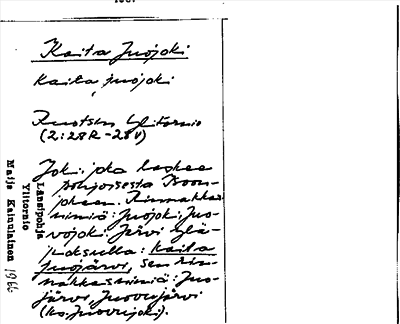 Kaita Juojoki
Kaita juojoki
Ruotsin Ylitornio
(2:28R-28V)
Joki, joka laskee
pohjoisesta Isoon-
jokeen. Rinnakkais-
nimiä: Juojoki, Juo-
vojoki. Järvi ylä-
juoksulla: Kaita
Juojärvi, sen rin-
nakkaisnimiä: Juo-
järvi, Juovujärvi
(ks. Juovujoki).
Länsipohja
Ylitornio
Maija Kainulainen 1966